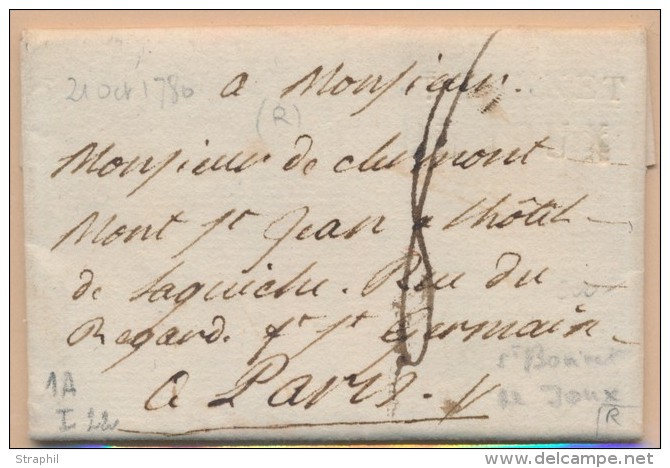 21 Oct 1780
a Monsieur.
(R)
Monsieur de clermont
Mont St Jean a lhôtel
de Laguiche. Rue du
Regard. fr St Germain
a Paris.
St Bonnet
de Joux
1A
I 22
R
Straphil
delcampe.net